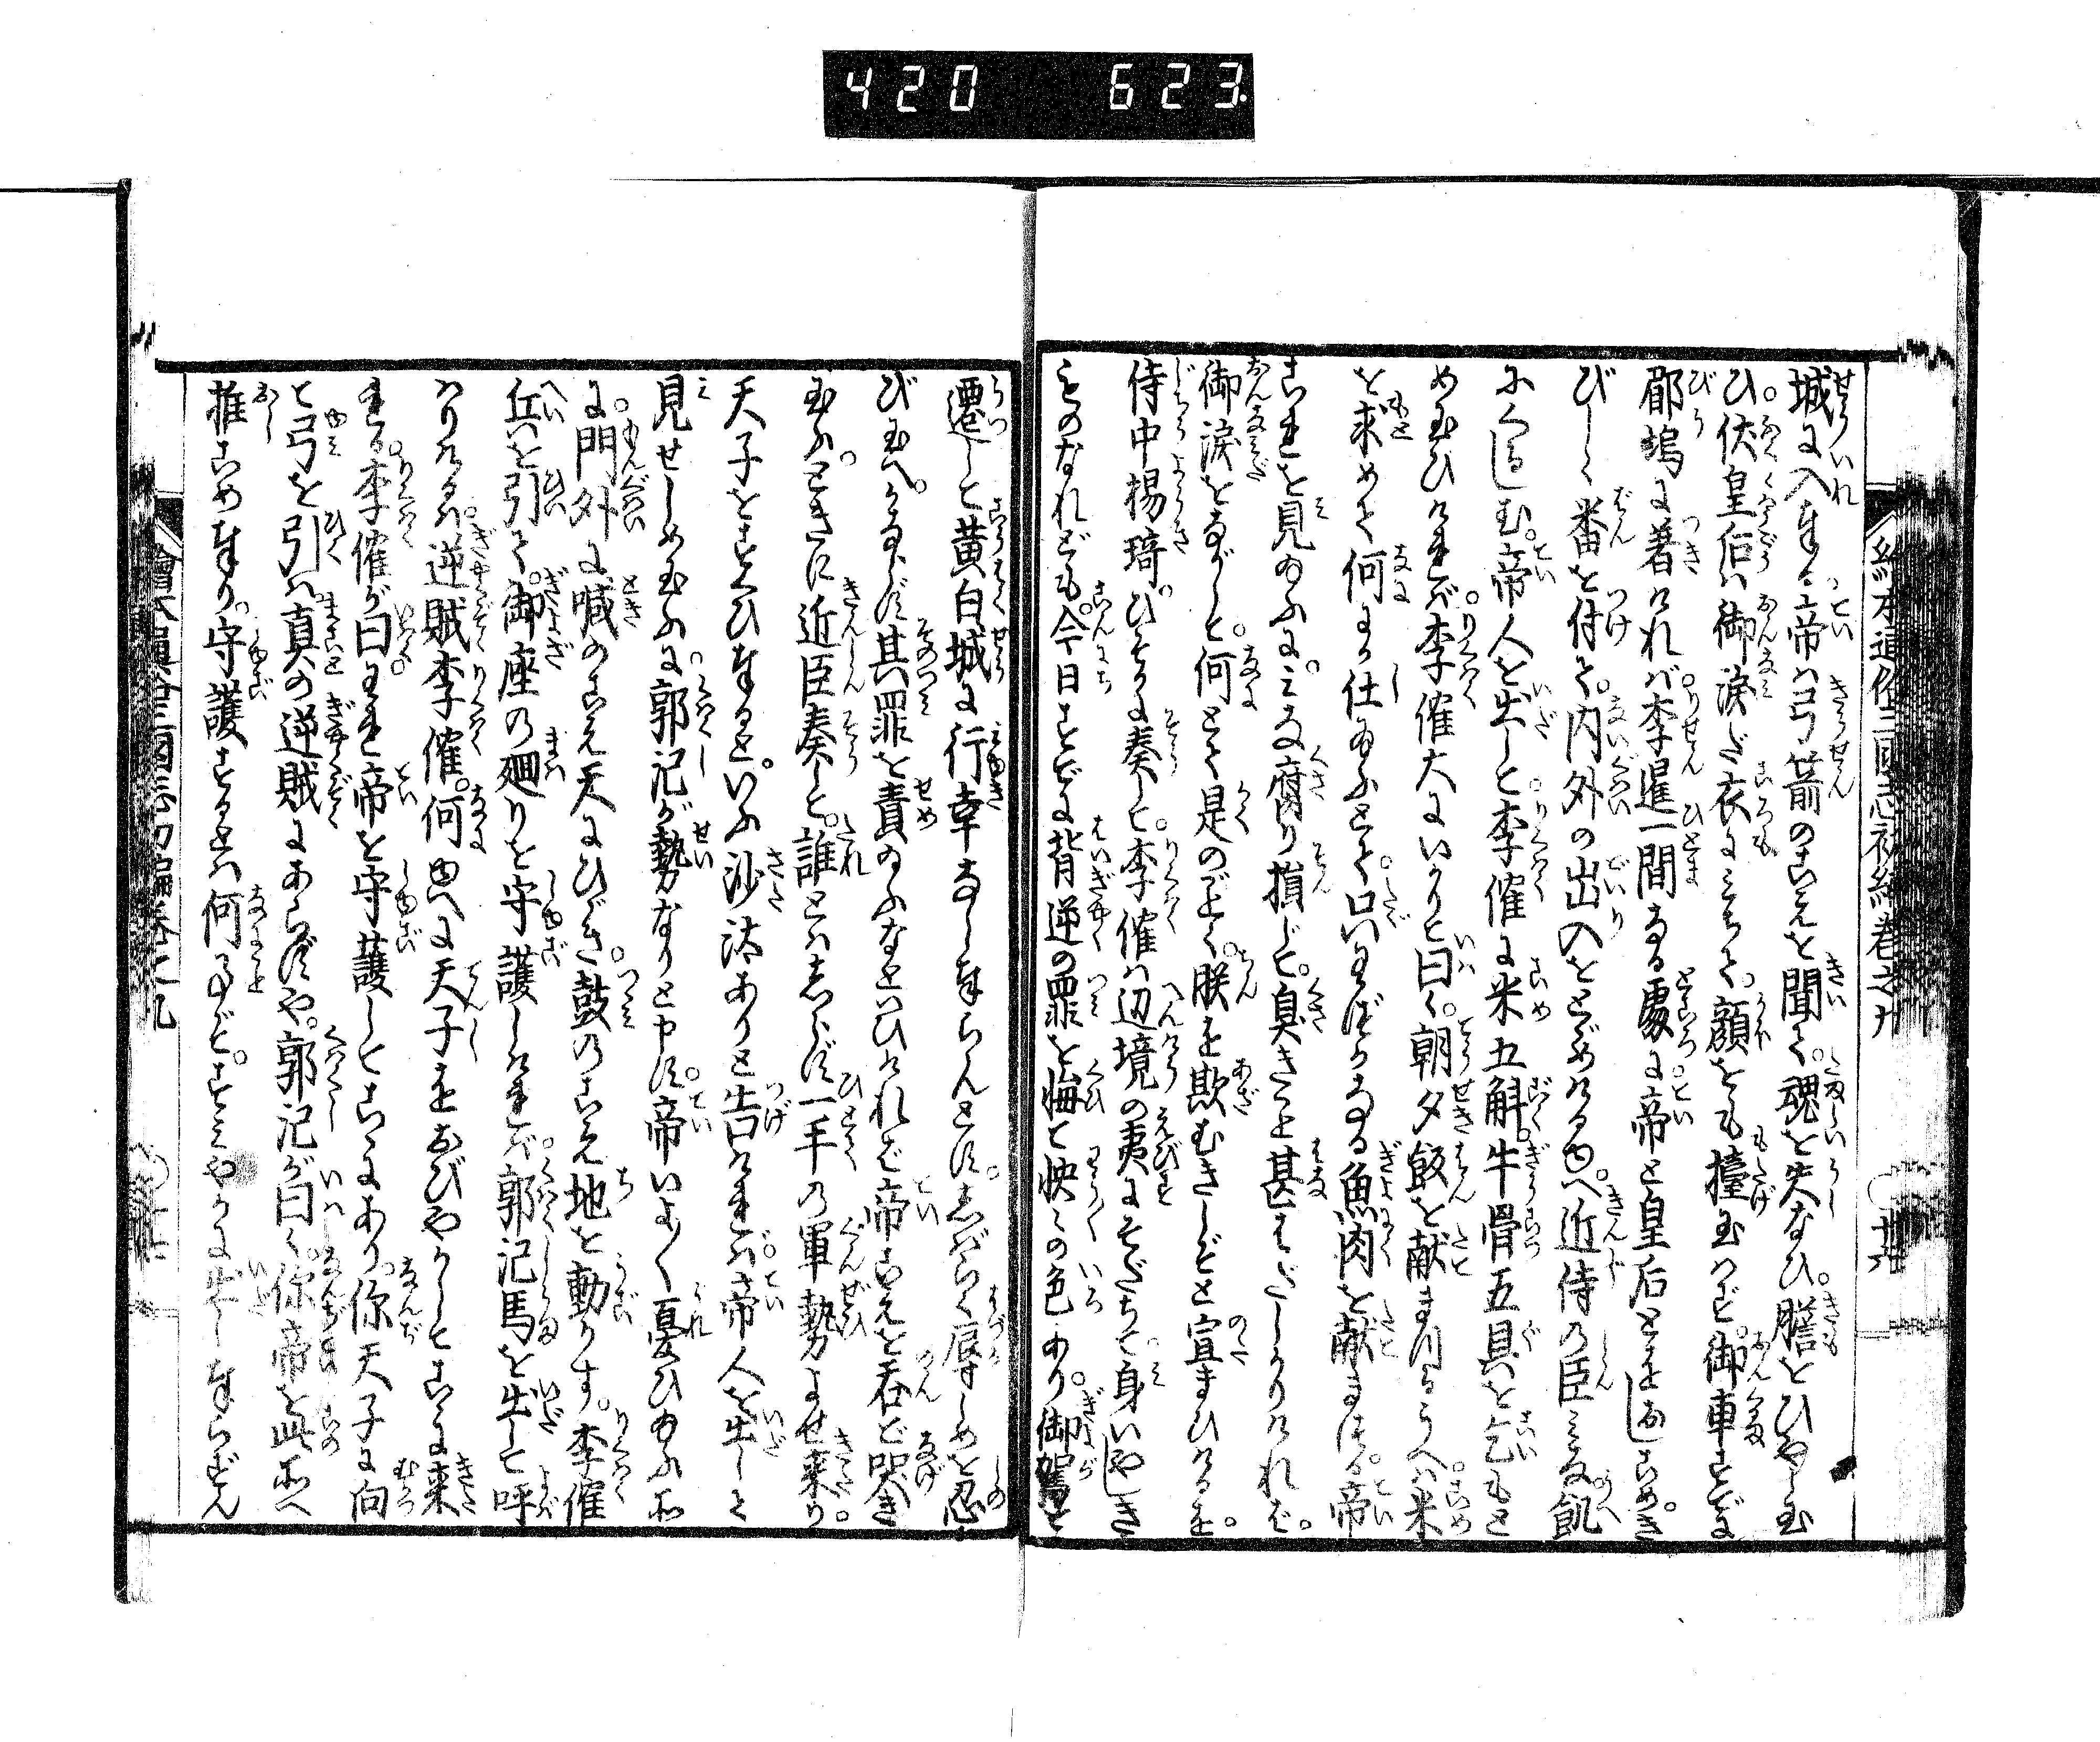 420 623
繪本通俗三國志初編卷之九
城に入奉る。帝ハ弓箭のこゑを聞て。魂を失なひ。膽をひやし玉
ひ。伏皇后ハ御涙だ衣にみちて。顔をも擡玉ハず。御車すでに
郿塢に着けれバ。李暹一間なる處に帝と皇后とをおしこめ。き
びしく番を付て。内外の出入をとゞめけるゆへ。近侍の臣みな飢
にくるしむ。帝人を出して。李傕に米五斛。牛骨五具を乞もと
め玉ひけれバ。李傕大にいかりて曰く。朝夕飯を献まつるうへハ。米
を求めて何にか仕給ふとて。口いわづかなる魚肉を献まつる。帝
これを見給ふに。みな腐り損じて。臭きこと甚はだしかりけれバ。
御涙をながして。何とて是のごとく。朕を欺むきしぞと宣まひけるを。
侍中楊琦。ひそかに奏して。李傕ハ辺境の夷にそだちて。身いやしき
ものなれども。今日すでに背逆の罪を悔て怏々の色あり。御駕を
遷して黄白城に行幸なし奉らんとす。志ばらく辱しめを忍
び玉へ。かならず其罪を責給ふなといひけれバ。帝こゑを呑で哭き
玉ふ。ときに近臣奏して。誰とハ志らず一手の軍勢よせ来り。
天子をすくひ奉ると。いふ沙汰ありと告けれバ。帝人を出して
見せしめ玉ふに。郭汜が勢なりと申す。帝いよ〱憂ひ給ふ所
に。門外に喊のこゑ天にひゞき。鼓のこゑ地を動かす。李傕
兵を引て。御座の廻りを守護しけれバ。郭汜馬を出して呼
ハりけるハ。逆賊李傕。何ゆへに天子をおびやかしてこゝに来
れる。李傕が曰。われ帝を守護してこゝにあり。你天子に向
て弓を引ハ。真の逆賊にあらずや。郭汜が曰く。你帝を此所へ
推こめ奉り。守護するとハ何ごとぞ。すみやかに出し奉らずん
繪本通俗三國志初編卷之九